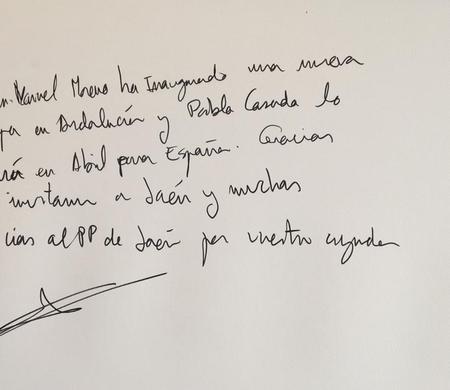 n. Manuel Moreno ha Inaugurado una nueva
pa en Andalucía y Pablo Casado lo
rá en Abril para España. Gracias
invitarme a Jaén y muchas
cias al PP de Jaén por vuestra ayuda